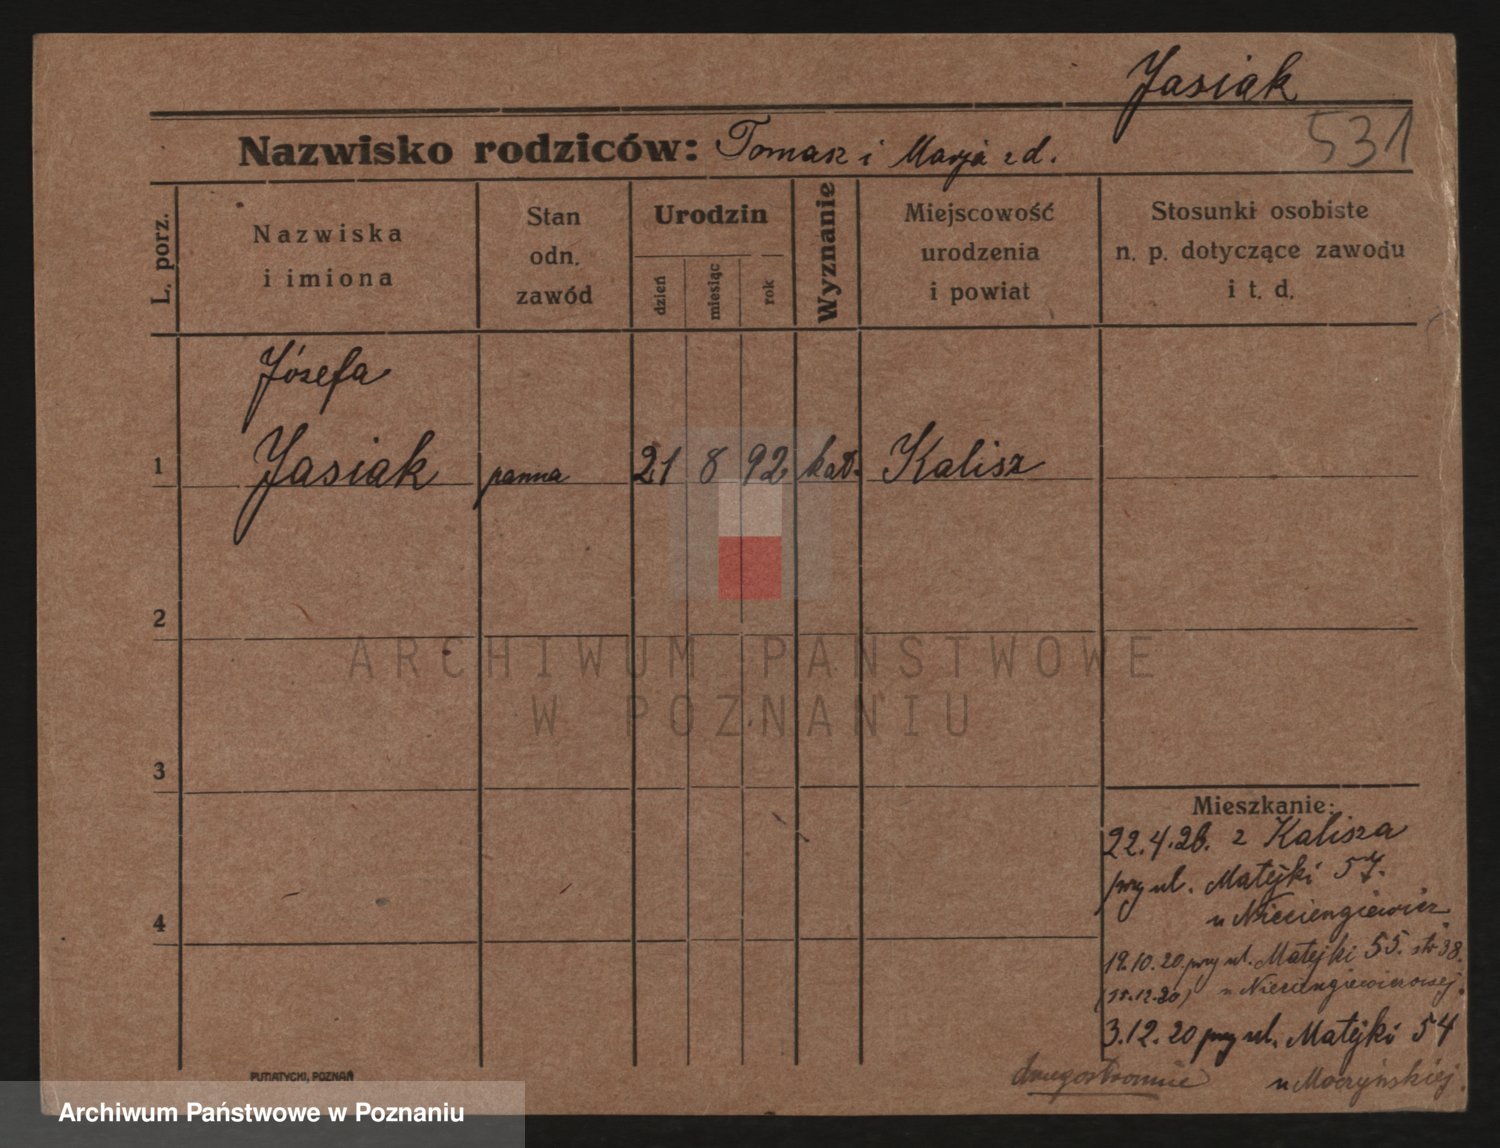 Jasiak
531
Nazwisko rodziców: Tomasz i Marja zd.
L. porz.
Nazwiska
i imiona
Stan
odn.
zawód
Urodzin
dzień
miesiąc
rok
Wyznanie
Miejscowość
urodzenia
i powiat
Stosunki osobiste
n. p. dotyczące zawodu
i t. d.
Józefa
1 Jasiak panna 21 8 92 kat. Kalisz
2
3
4
ARCHIWUM PAŃSTWOWE
W POZNANIU
Mieszkanie:
22.4.20. z Kalisza
przy ul. Matejki 57.
u
19.10.20 przy ul. Matejki 55. str 38.
u
3.12.20 przy ul. Matejki 54
u Moczyńskiej.
drugostronnie
PUTIATYCKI, POZNAŃ
Archiwum Państwowe w Poznaniu